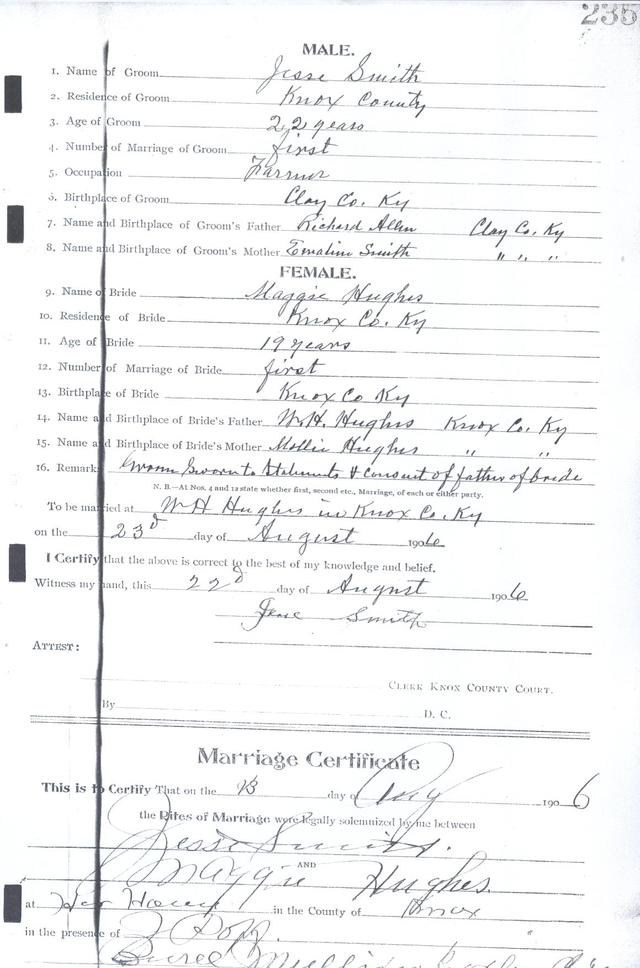 235
MALE.
1. Name of Groom Jesse Smith
2. Residence of Groom Knox County
3. Age of Groom 22 years
4. Number of Marriage of Groom first
5. Occupation Farmer
6. Birthplace of Groom Clay Co. Ky
7. Name and Birthplace of Groom's Father Richard Allen Clay Co. Ky
8. Name and Birthplace of Groom's Mother Emaline Smith " " "
FEMALE.
9. Name of Bride Maggie Hughes
10. Residence of Bride Knox Co. Ky
11. Age of Bride 19 years
12. Number of Marriage of Bride first
13. Birthplace of Bride Knox Co Ky
14. Name and Birthplace of Bride's Father W.H. Hughes Knox Co. Ky
15. Name and Birthplace of Bride's Mother Mollie Hughes " "
16. Remarks Groom Sworn to Statements & consent of father of bride
N. B.—At Nos. 4 and 12 state whether first, second etc., Marriage, of each or either party.
To be married at W H Hughes in Knox Co. Ky
on the 23d day of August 1906
I Certify that the above is correct to the best of my knowledge and belief.
Witness my hand, this 22d day of August 1906
Jesse Smith
ATTEST:
CLERK KNOX COUNTY COURT.
By D. C.
Marriage Certificate
This is to Certify That on the 23 day of Aug 1906
the Rites of Marriage were legally solemnized by me between
Jesse Smith.
AND
Maggie Hughes.
at in the County of Knox
in the presence of